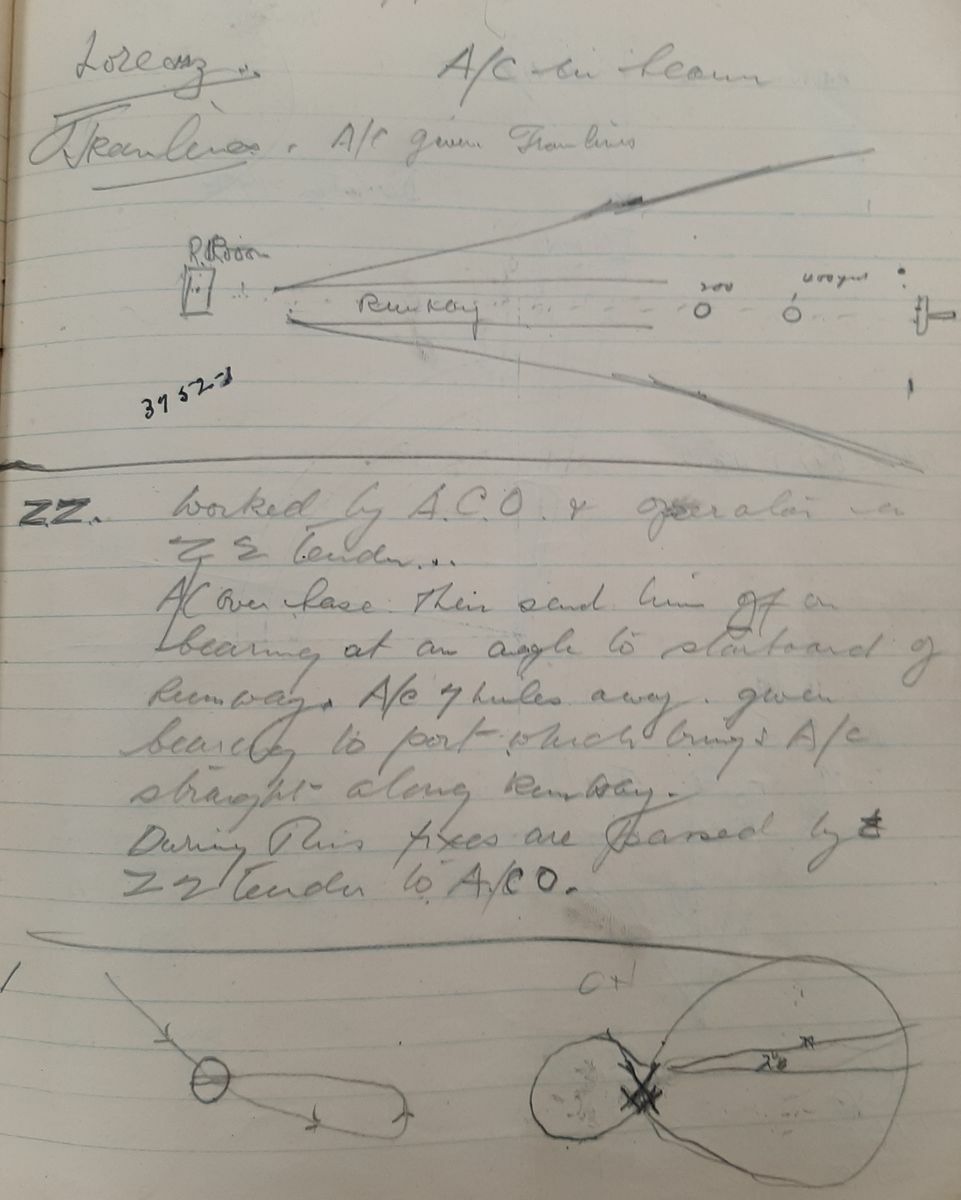 Lorenz.. A/C in beam
Tramlines. A/C given Tramlines
R/Room
Runway
200
400yds
ZZ. Worked by A.C.O. & operator in
ZZ tender...
A/C over base. Then send him off on
bearing at an angle to starboard of
Runway. A/C 7 miles away. given
bearing to port which brings A/C
straight along Runway.
During This fixes are passed by
ZZ tender to A/C O.